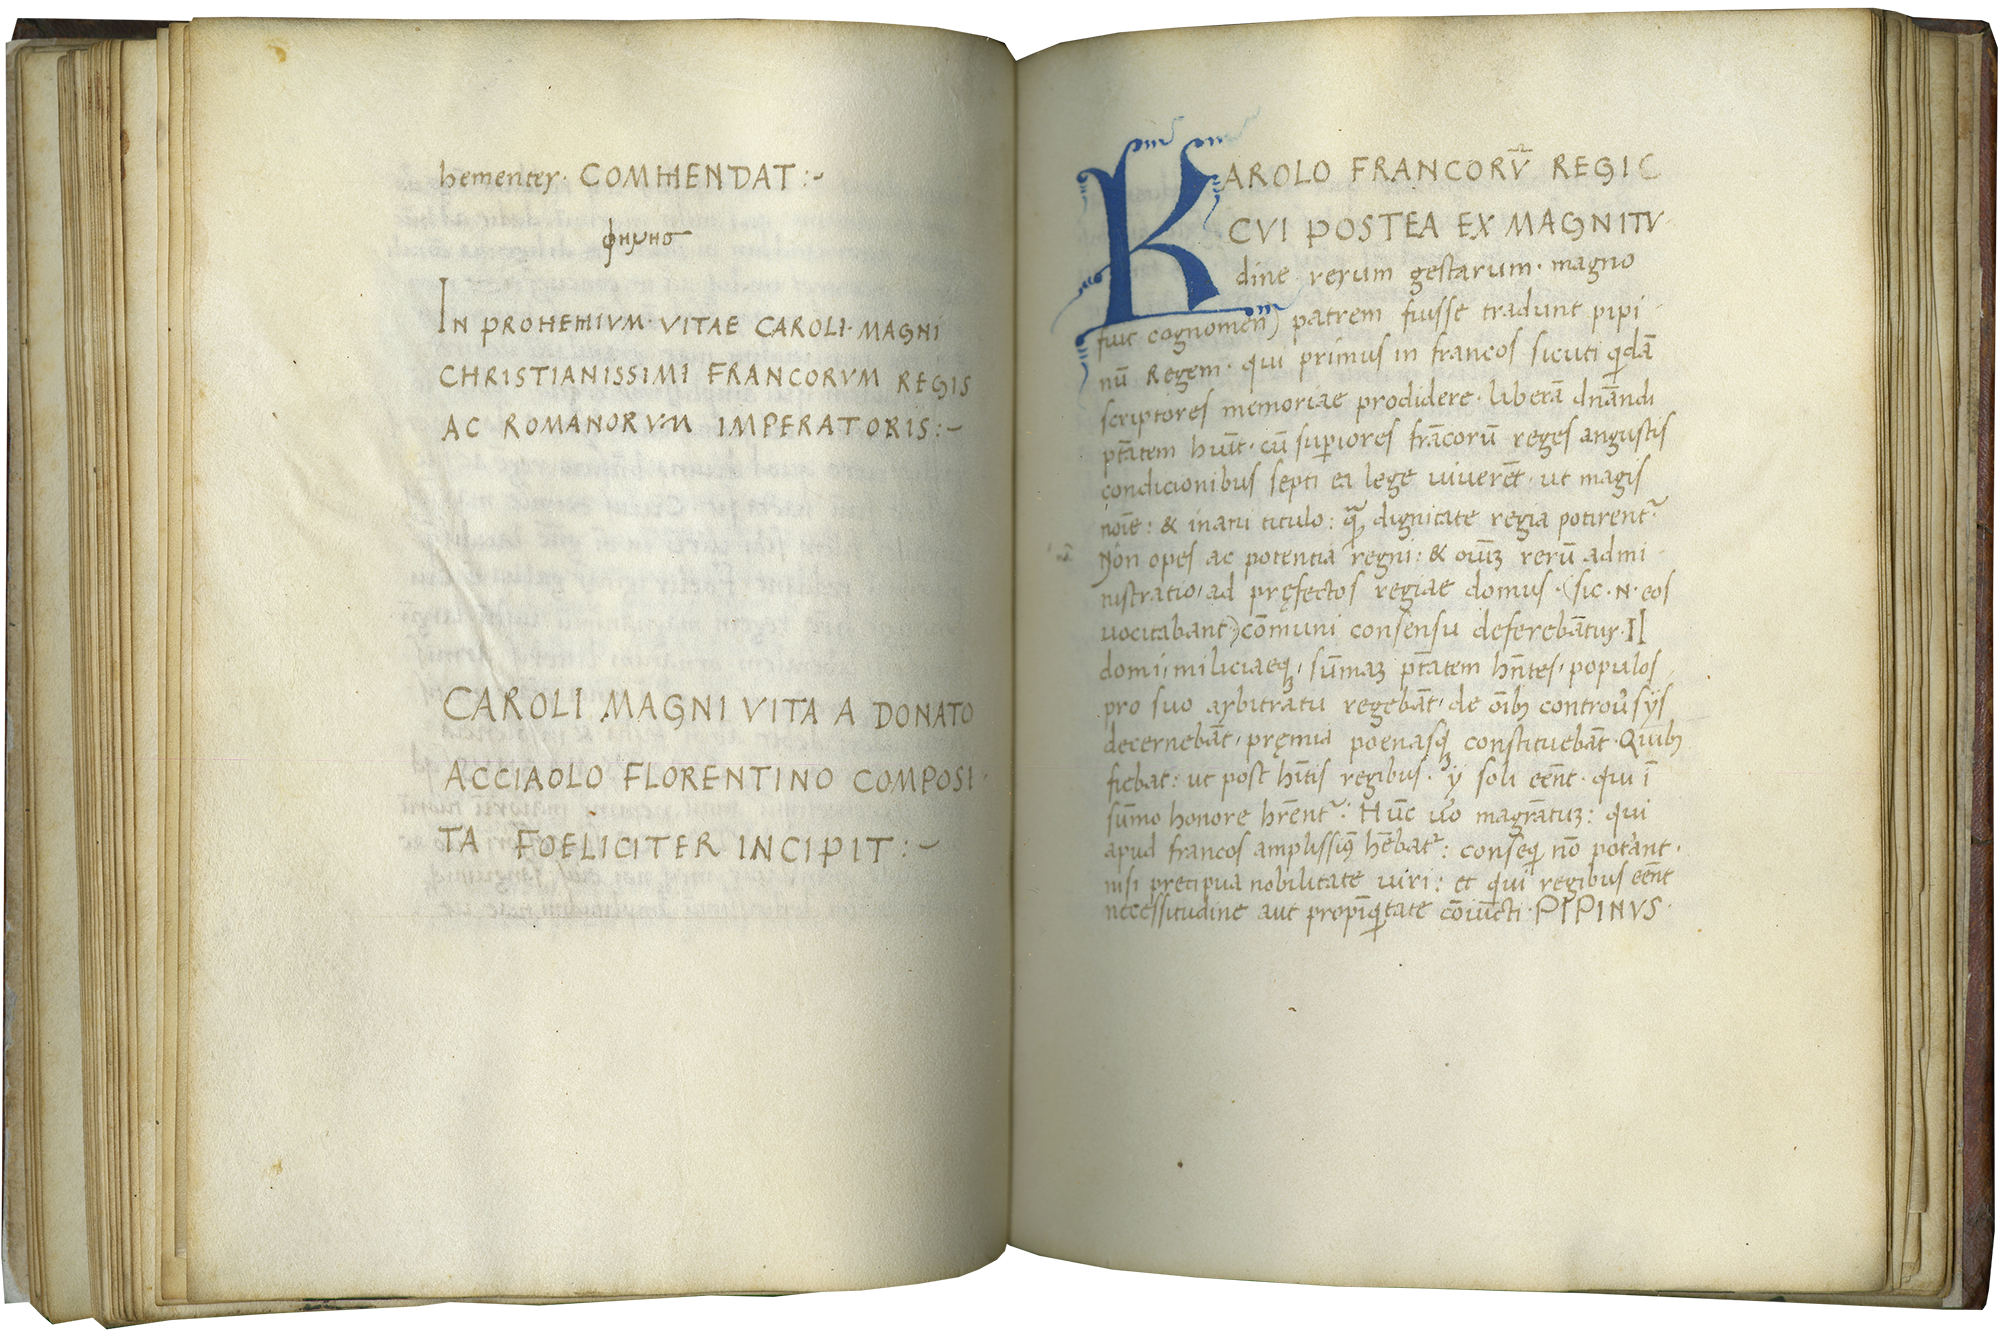 hementer· COMMENDAT:~
φηνησ
IN PROHEMIVM· VITAE CAROLI· MAGNI
CHRISTIANISSIMI FRANCORVM REGIS
AC ROMANORVM IMPERATORIS:~
CAROLI MAGNI VITA A DONATO
ACCIAOLO FLORENTINO COMPOSI·
TA FOELICITER INCIPIT:~
KAROLO FRANCORV̄ REGI C
CVI POSTEA EX MAGNITV·
dine rerum gestarum· magno
fuit cognomen) patrem fuisse tradunt pipi·
nū Regem· qui primus in francos sicuti q̇dā
scriptores memoriae prodidere· liberā dn̄andi
ptātem hūit· cū suꝑiores frācorū reges angustis
condicionibus septi ea lege uiuerēt· ut magis
noīe: & inani titulo: qᷓ dignitate regia potirent᷑·
Non opes ac potentia regni: & oiūꝫ rerū admi·
nistratio, ad pręfectos regiae domus· (sic· N· eos
uocitabant) cōmuni consensu deferebātur· II
domi, miliciaeqꝫ, sūmaꝫ ptātem hn̄tes, populos
pro suo arbitratu regebāt, de oībꝫ controūsijs
decernebāt, pręmia poenasqꝫ constituebāt· Quibꝫ
fiebat: ut post hītis regibus· ij soli eēnt· qui ī
sūmo honore hr̄ent᷑: Hūc uo magrātuꝫ: qui
apud francos amplissīꝫ hēbat᷑: conseq̇ nō potānt·
nisi precipua nobilitate uiri: et qui regibus eēnt
necessitudine aut propīq̇tate cōiūcti· PIPINVS·